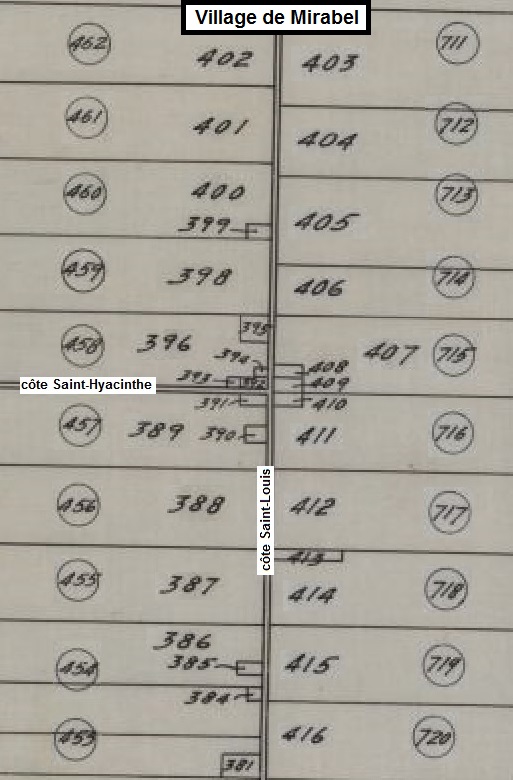 Village de Mirabel
462 402 403 711
461 401 404 712
460 400 405 713
399
459 398 406 714
395
458 396 407 715
394 408
393 392 409
côte Saint-Hyacinthe
391 410
457 389 390 411 716
côte Saint-Louis
456 388 412 717
413
455 387 414 718
386
454 385 415 719
384
453 416 720
381